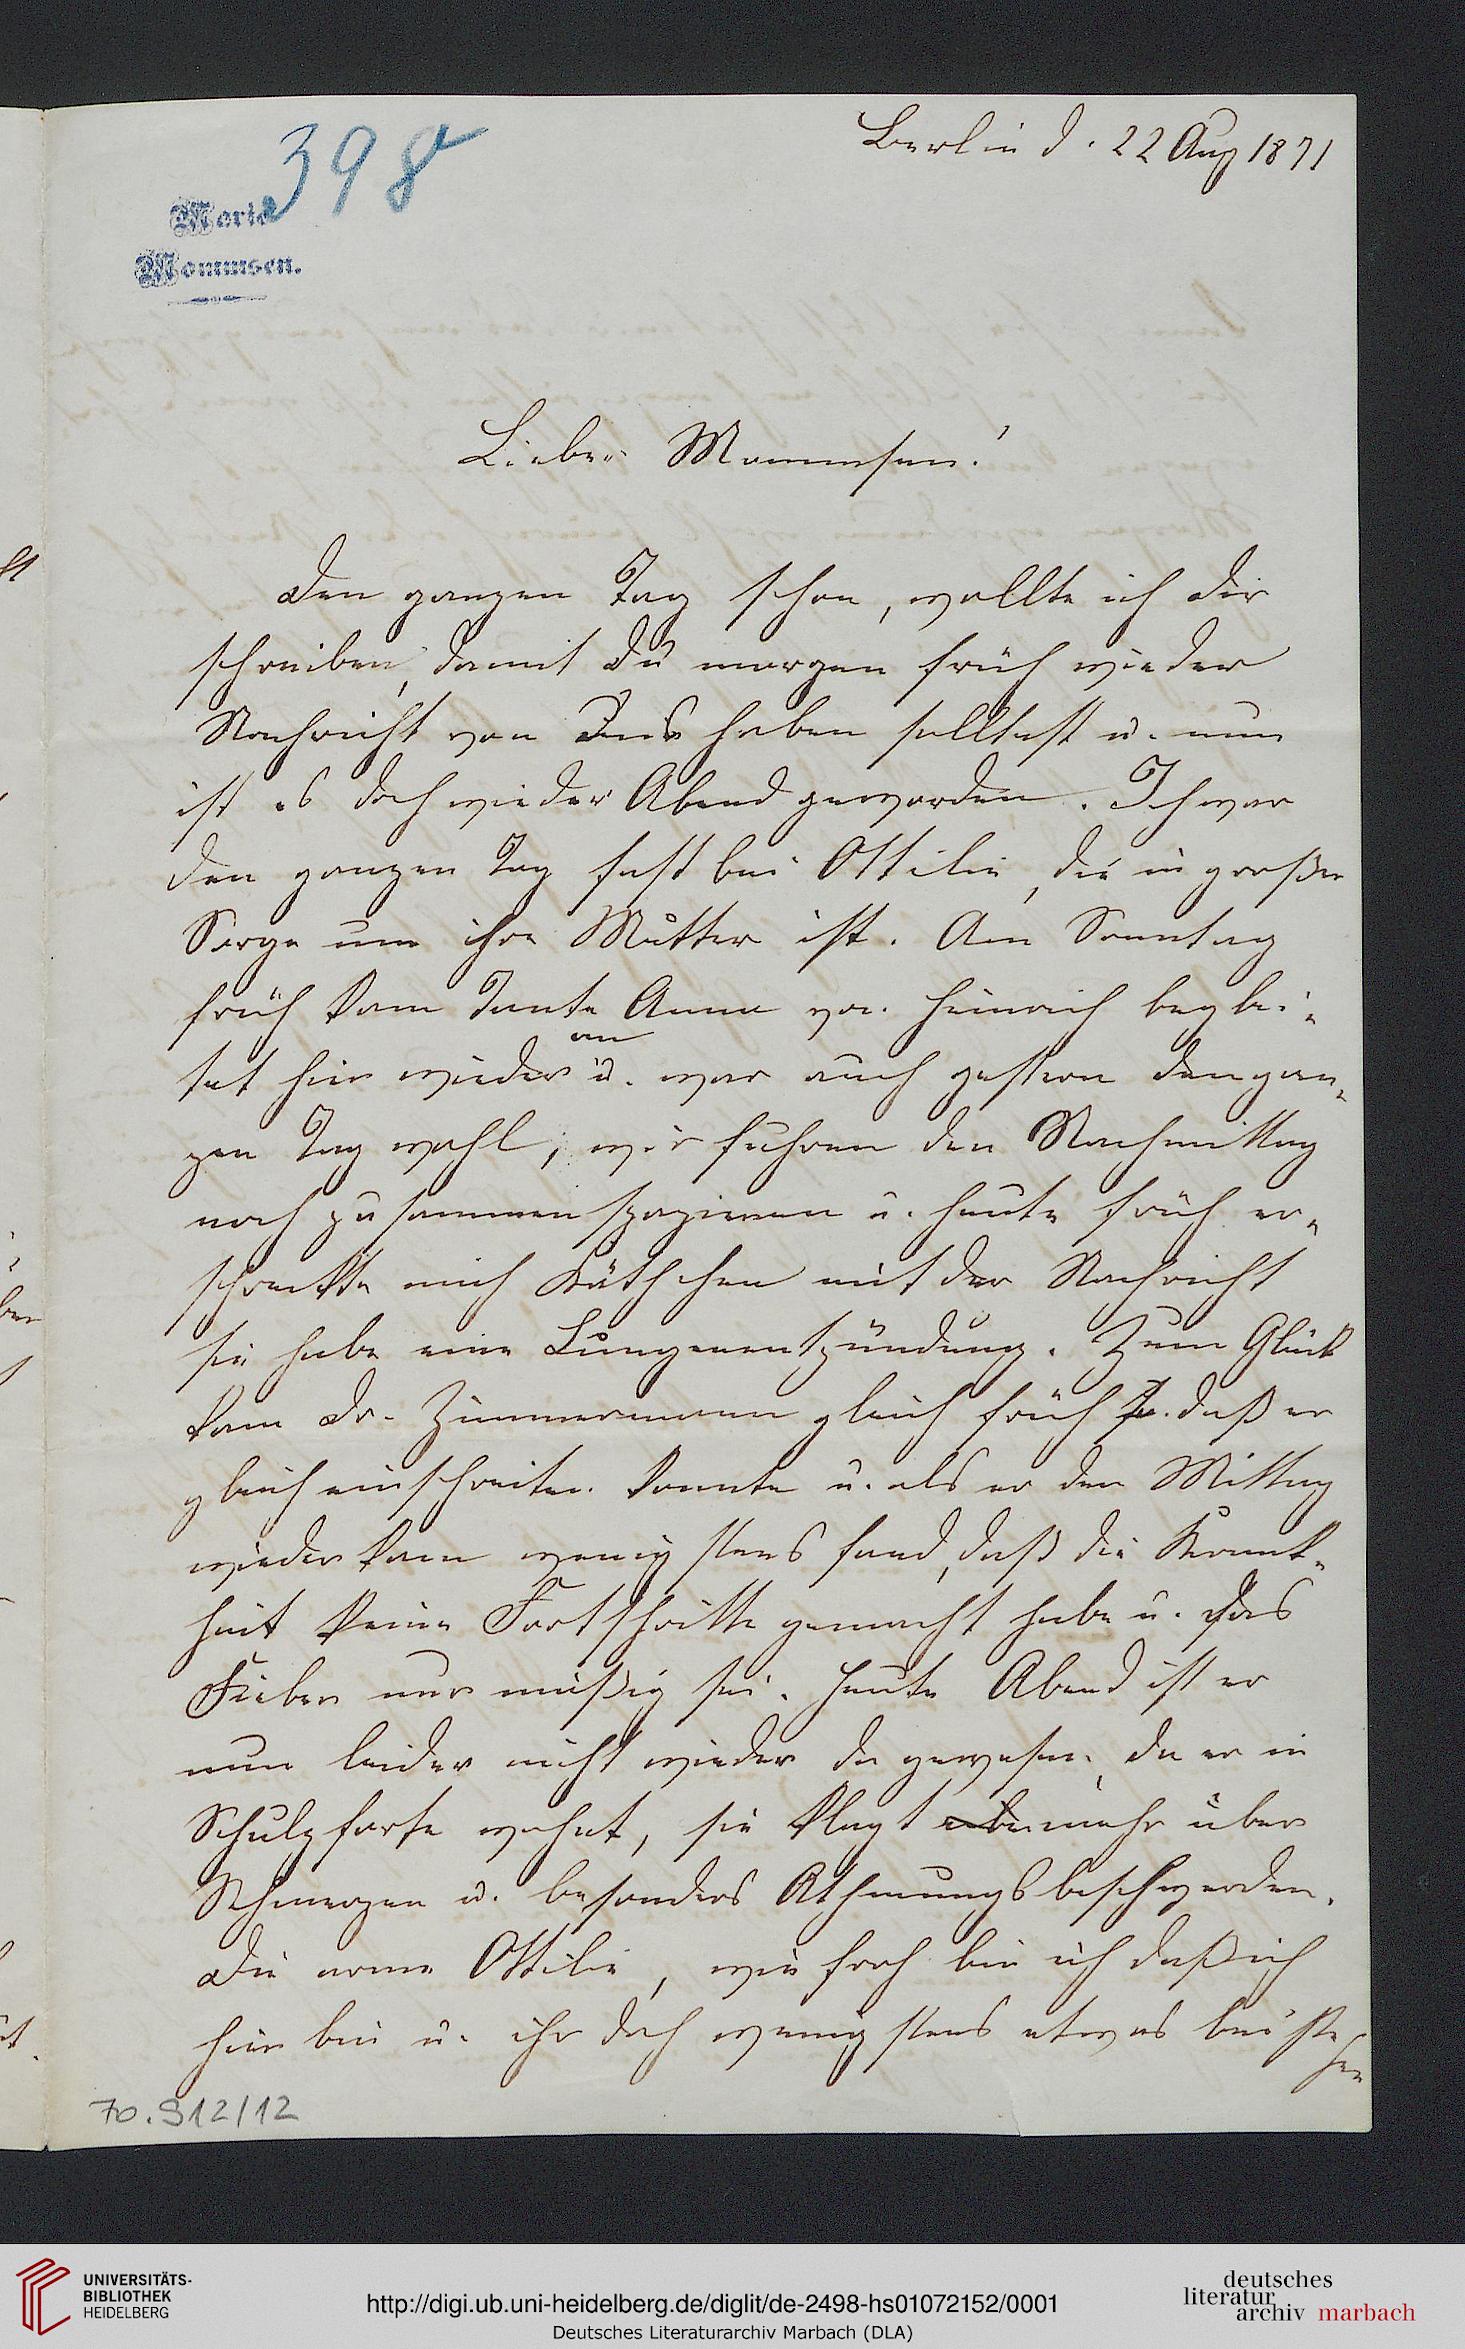 398
Berlin d. 22 Aug 1871
Marie
Mommsen.
Lieber Mommsen!
Den ganzen Tag schon, wollte ich Dir
schreiben, damit Du morgen früh wieder
Nachricht von Uns haben solltest u. nun
ist es doch wieder Abend geworden. Ich war
den ganzen Tag fast bei Ottilie, die in großer
Sorge um ihre Mutter ist. Am Sonntag
früh kam Tante Anna von Heinrich beglei-
an
tet hier wieder u. war auch gestern den gan-
zen Tag wohl, wir fuhren den Nachmittag
noch zusammen spazieren u. heute früh er-
schreckte mich Käthchen mit der Nachricht
sie habe eine Lungenentzündung. Zum Glück
kam Dr. Zimmermann gleich früh so daß er
gleich einschreiten konnte u. als er den Mittag
wieder kam wenigstens fand, daß die Krank-
heit keine Fortschritte gemacht habe u. das
Fieber nur mäßig sei. Heute Abend ist er
nun leider nicht wieder da gewesen, da er in
Schulpforte wohnt, sie klagt mehr über
Schmerzen u. besonders Athmungsbeschwerden.
Die arme Ottilie, wie froh bin ich daß ich
hier bin u. ihr doch wenigstens etwas beiste
hen
70.912/12
UNIVERSITÄTS-
BIBLIOTHEK
HEIDELBERG
http://digi.ub.uni-heidelberg.de/diglit/de-2498-hs01072152/0001
Deutsches Literaturarchiv Marbach (DLA)
deutsches
literatur
archiv marbach